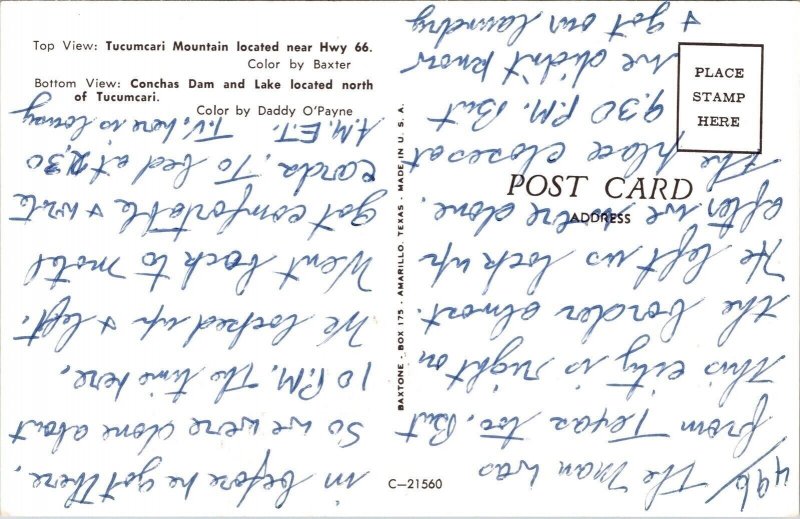 Top View: Tucumcari Mountain located near Hwy 66.
Color by Baxter
Bottom View: Conchas Dam and Lake located north
of Tucumcari.
Color by Daddy O'Payne
PLACE
STAMP
HERE
POST CARD
ADDRESS
BAXTONE - BOX 175 - AMARILLO, TEXAS - MADE IN U. S. A.
C—21560
The man was
from Texas too. But
this city is right on
the border almost.
He left us lock up
after we were done.
The place closes at
9.30 P.M. But
we didn't know
& got our laundry
in before he got there.
So we were done about
10 P.M. The time here.
We locked up & left.
Went back to motel
got comfortable & wrote
cards. To bed at
A.M. E.T. T.V. here is lousy